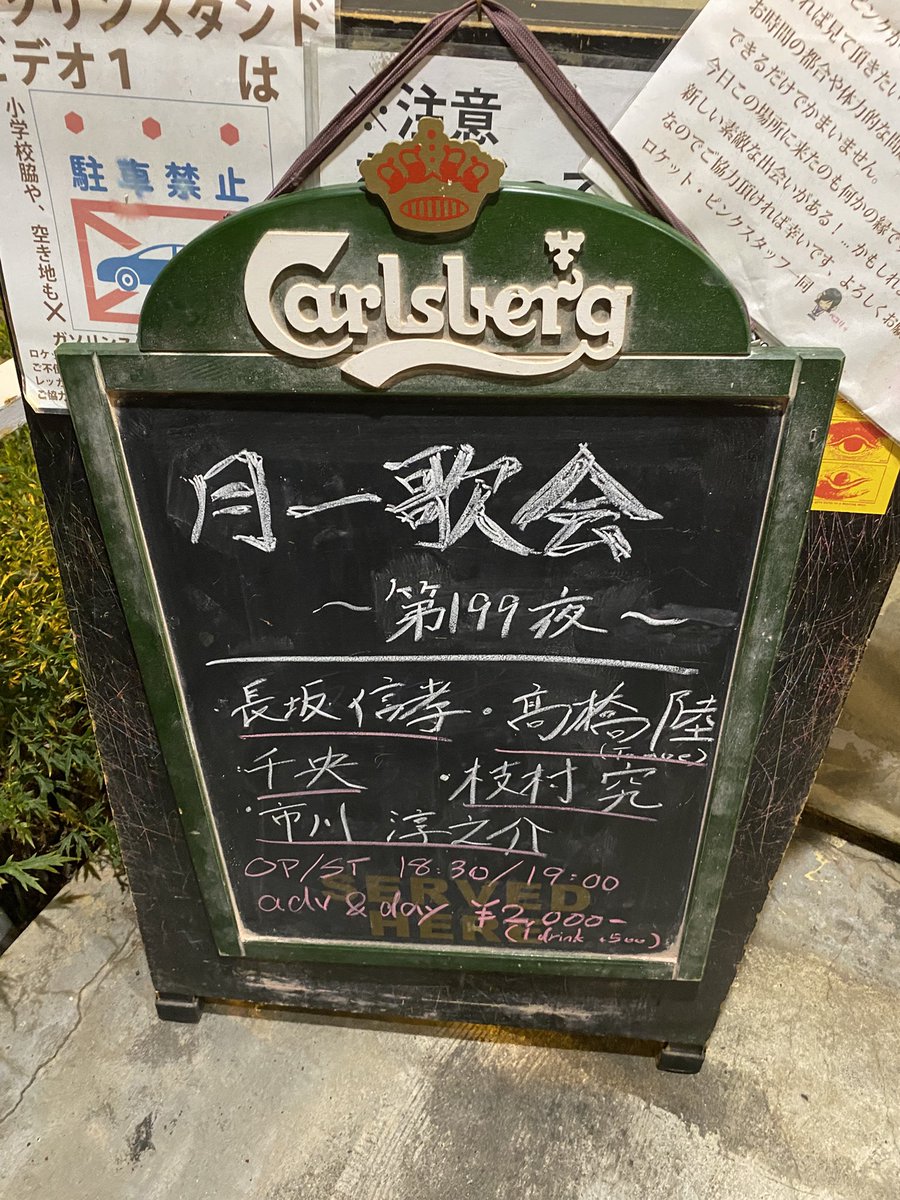 リンスタンド
デオ1 は
小学校脇や、空き地も×
駐車禁止
※注意
れば見て頂きたい
お時間の都合や体力的な間
できるだけでかまいません。
今日この場所に来たのも何かの縁で
新しい素敵な出会いがある！…かもしれ
なのでご協力頂ければ幸いです よろしくお
ロケット・ピンクスタッフ一同
Carlsberg
月一歌会
〜第199夜〜
・長坂信孝・高橋陸
・千央 ・枝村究
・市川 淳之介
OP/ST 18:30/19:00
adv & day ¥2,000-
(1drink +500)
SERVED
HERE